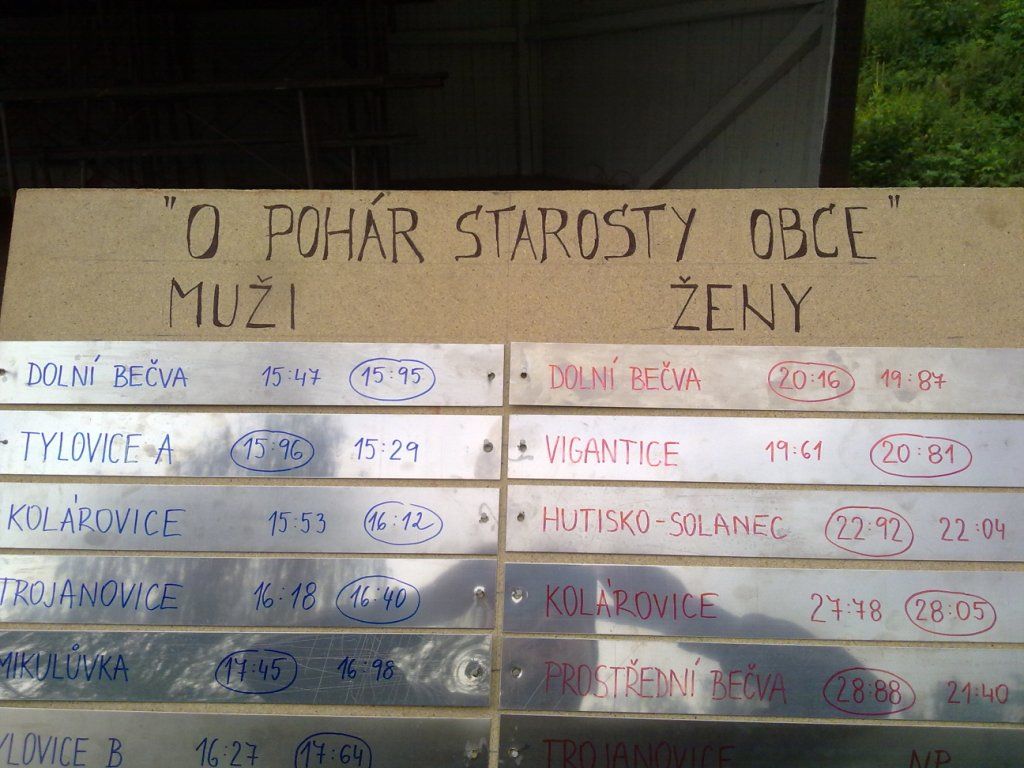 "O POHÁR STAROSTY OBCE"
MUŽI ŽENY
DOLNÍ BEČVA 15:47 15:95 DOLNÍ BEČVA 20:16 19:87
TYLOVICE A 15:96 15:29 VIGANTICE 19:61 20:81
KOLÁROVICE 15:53 16:12 HUTISKO-SOLANEC 22:92 22:04
TROJANOVICE 16:18 16:40 KOLÁROVICE 27:78 28:05
MIKULŮVKA 17:45 16:98 PROSTŘEDNÍ BEČVA 28:88 21:40
YLOVICE B 16:27 17:64 TROJANOVICE NP